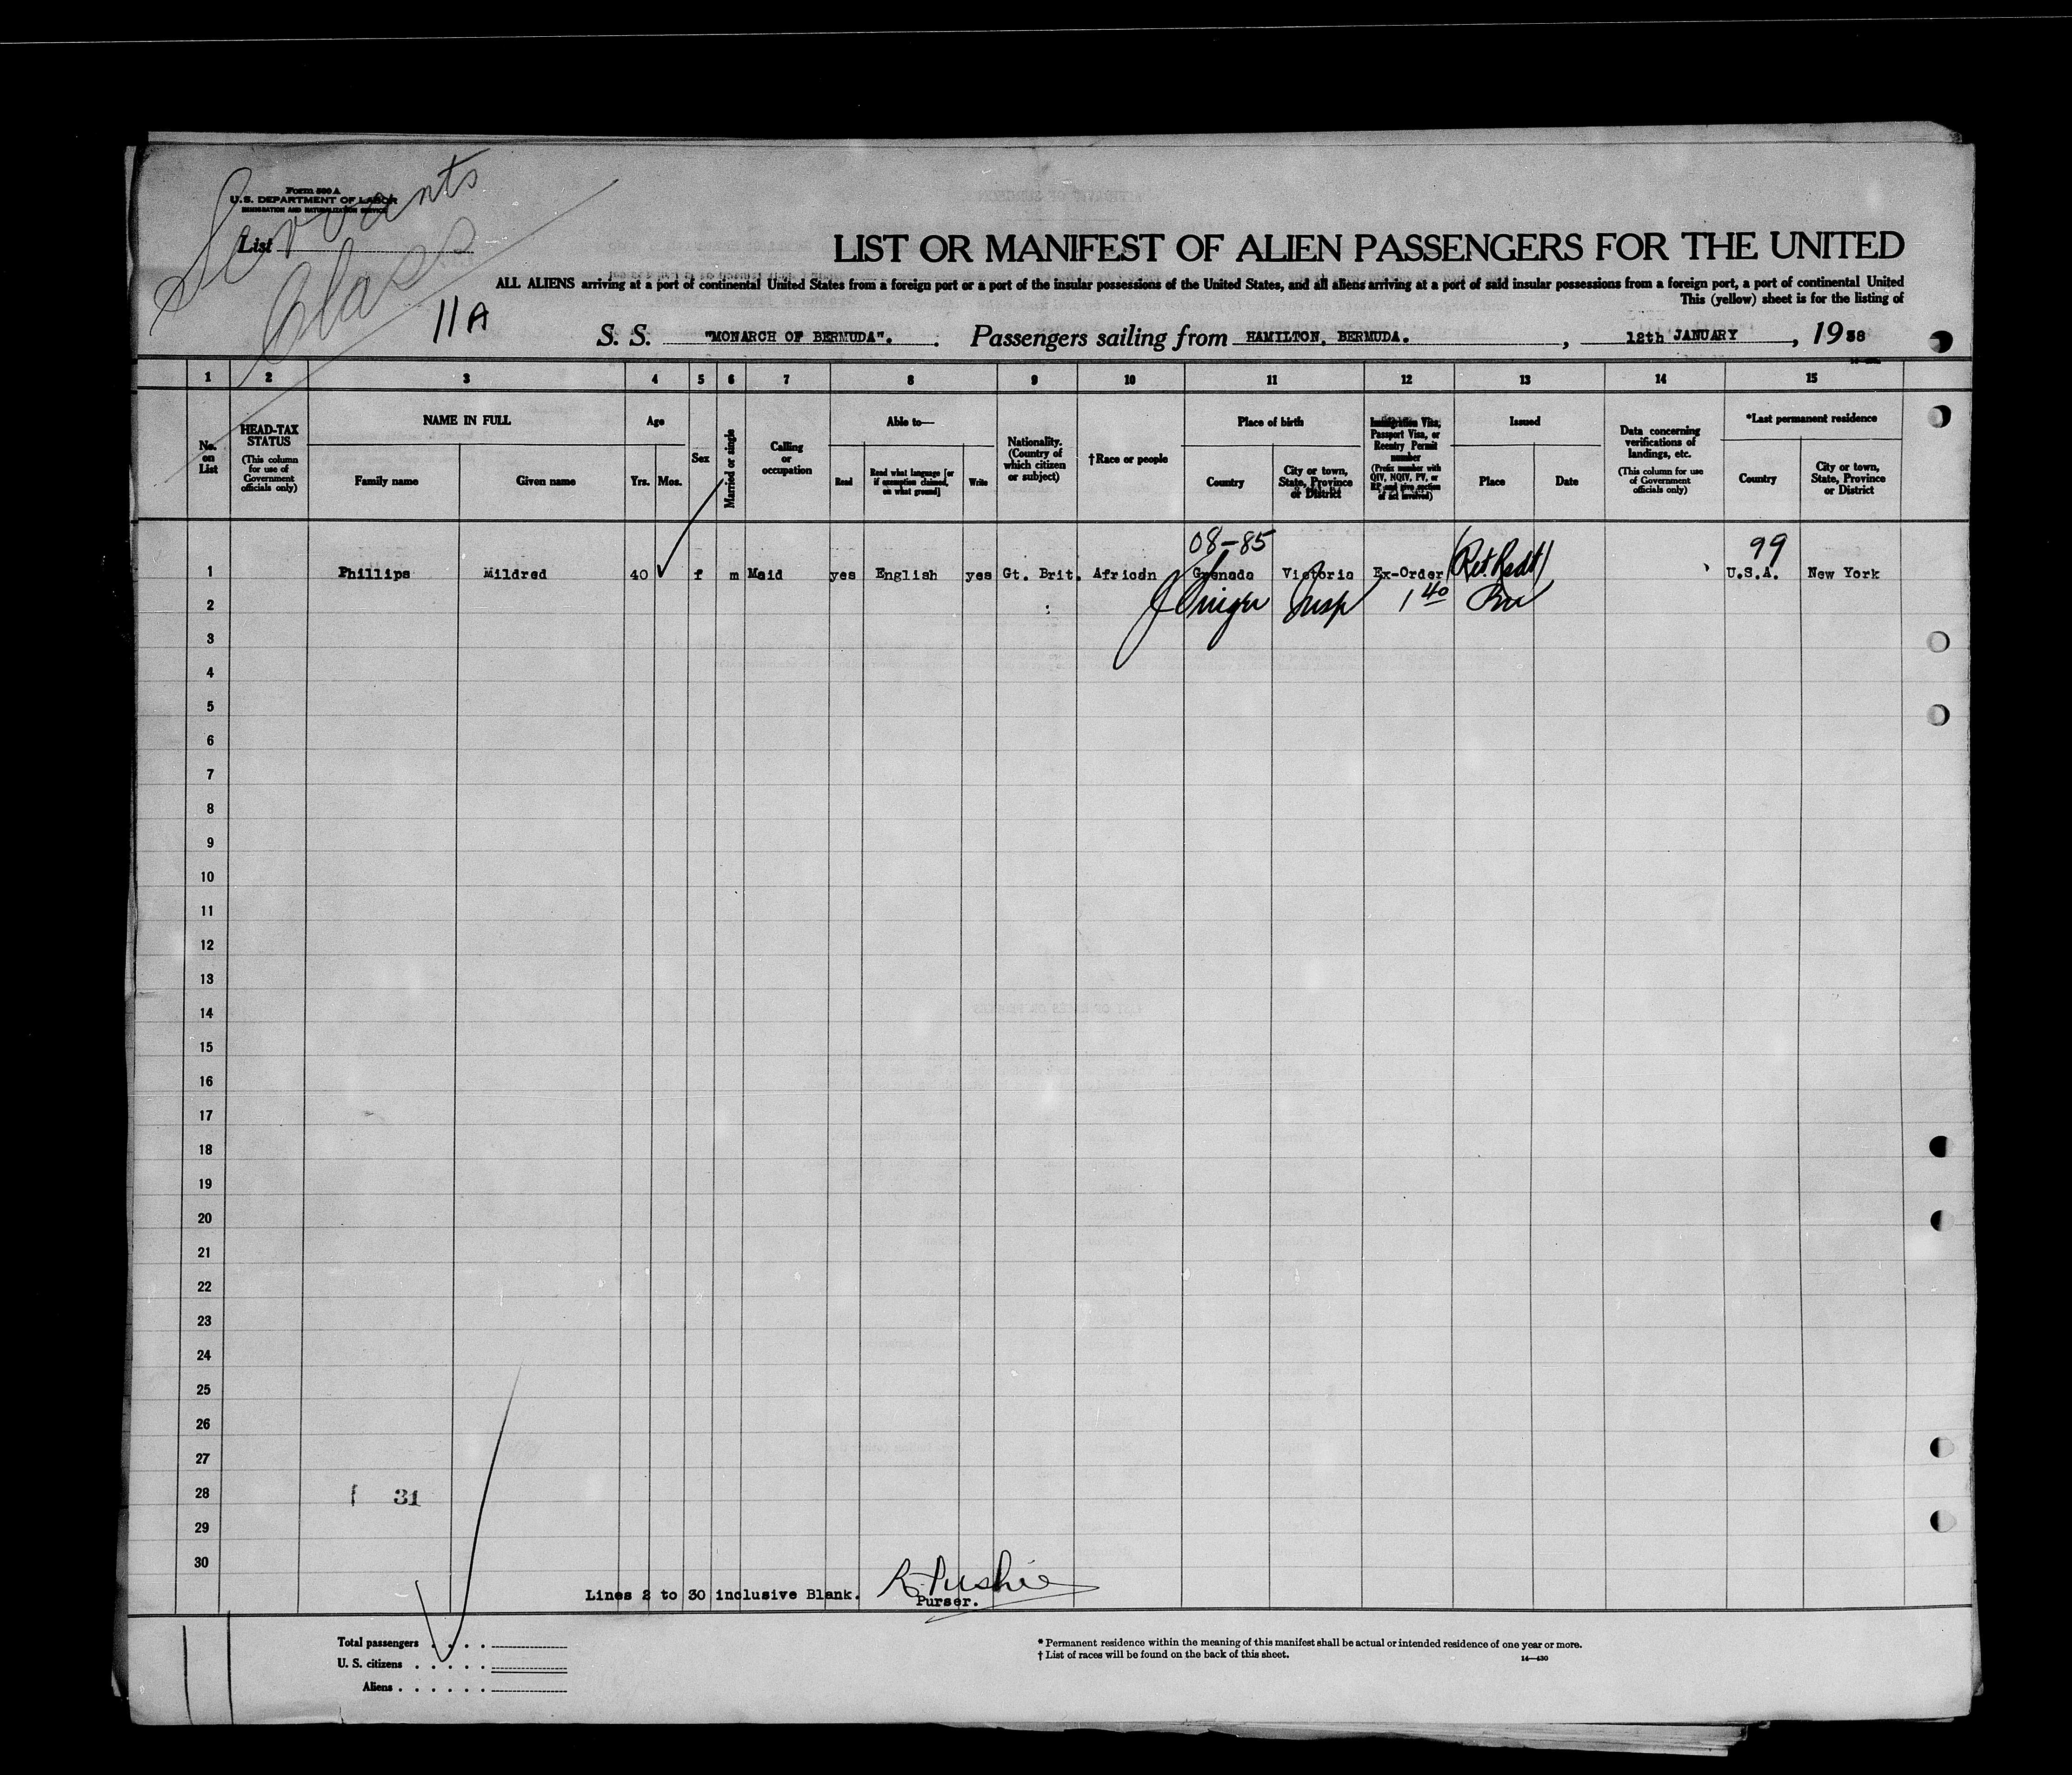 Servants
Class
Form 500 A
U.S. DEPARTMENT OF LABOR
IMMIGRATION AND NATURALIZATION SERVICE
List
11A
LIST OR MANIFEST OF ALIEN PASSENGERS FOR THE UNITED
ALL ALIENS arriving at a port of continental United States from a foreign port or a port of the insular possessions of the United States, and all aliens arriving at a port of said insular possessions from a foreign port, a port of continental United
This (yellow) sheet is for the listing of
S. S. "MONARCH OF BERMUDA". Passengers sailing from HAMILTON, BERMUDA. , 12th JANUARY , 1938
1 2 3 4 5 6 7 8 9 10 11 12 13 14 15
No. on List
HEAD-TAX STATUS
(This column for use of Government officials only)
NAME IN FULL
Family name
Given name
Age
Yrs. Mos.
Sex
Married or single
Calling or occupation
Able to—
Read
Read what language [or if exemption claimed, on what ground]
Write
Nationality. (Country of which citizen or subject)
†Race or people
Place of birth
Country
City or town, State, Province or District
Immigration Visa, Passport Visa, or Reentry Permit number
(Prefix number with QIV, NQIV, PV, or RP and give section of act involved)
Issued
Place
Date
Data concerning verifications of landings, etc.
(This column for use of Government officials only)
*Last permanent residence
Country
City or town, State, Province or District
08-85
99
1 Phillips Mildred 40 f m Maid yes English yes Gt. Brit. African Grenada Victoria Ex-Order U.S.A. New York
2 Insp 1 40
3
4
5
6
7
8
9
10
11
12
13
14
15
16
17
18
19
20
21
22
23
24
25
26
27
28 31
29
30
Lines 2 to 30 inclusive Blank.
Purser.
Total passengers
U. S. citizens
Aliens
* Permanent residence within the meaning of this manifest shall be actual or intended residence of one year or more.
† List of races will be found on the back of this sheet.
14—430